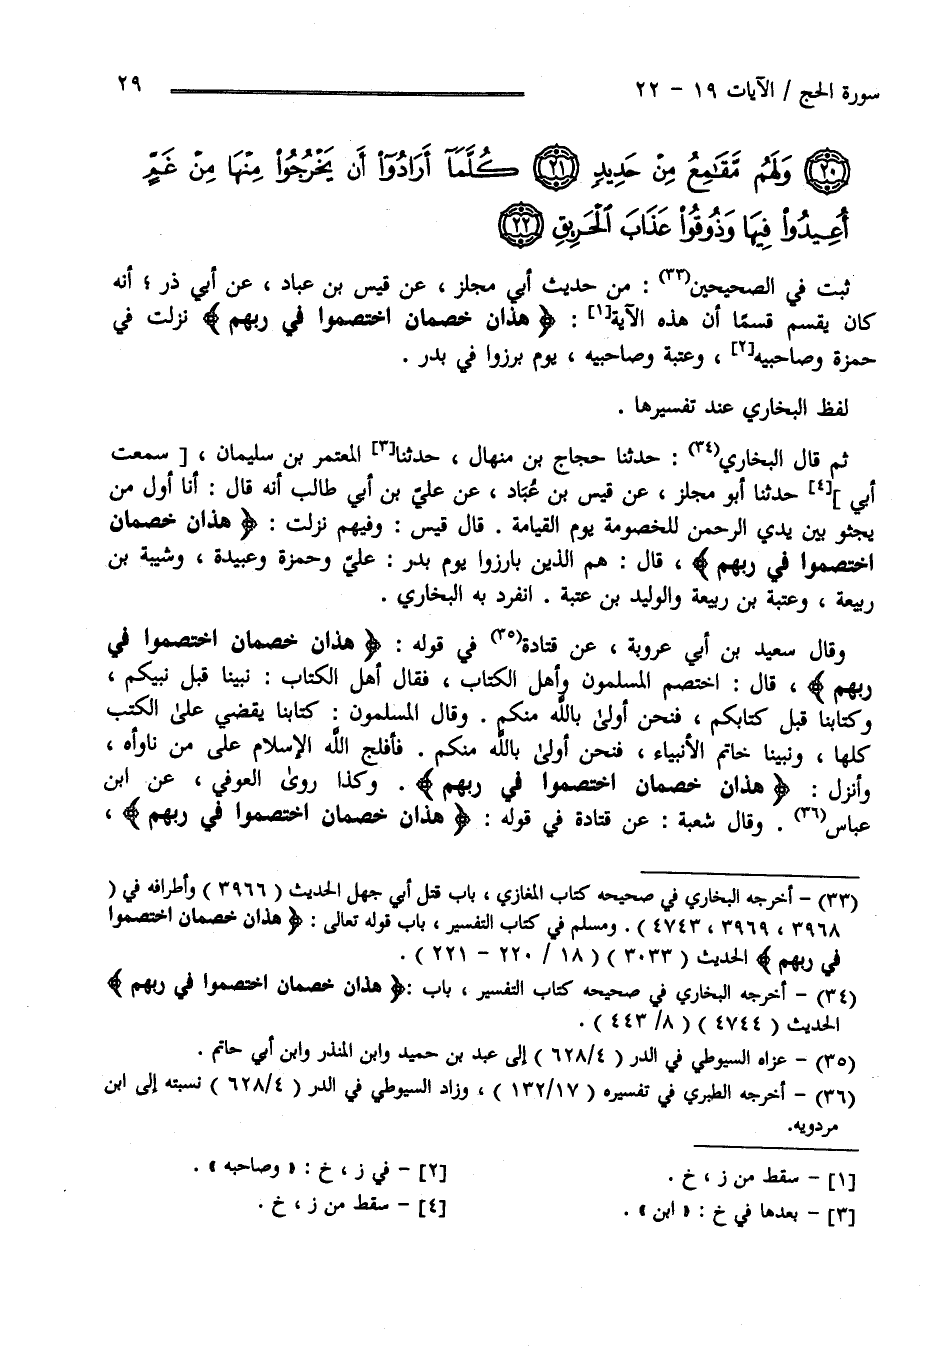 سورة الحج / الآيات ١٩ – ٢٢ ٢٩
﴿٢٠﴾ وَلَهُم مَّقَٰمِعُ مِنْ حَدِيدٍ ﴿٢١﴾ كُلَّمَآ أَرَادُوٓا۟ أَن يَخْرُجُوا۟ مِنْهَا مِنْ غَمٍّ
أُعِيدُوا۟ فِيهَا وَذُوقُوا۟ عَذَابَ ٱلْحَرِيقِ ﴿٢٢﴾
ثبت في الصحيحين(٣٣) : من حديث أبي مجلز ، عن قيس بن عباد ، عن أبي ذر ؛ أنه
كان يقسم قسمًا أن هذه الآية[١] : ﴿ هذان خصمان اختصموا في ربهم ﴾ نزلت في
حمزة وصاحبيه[٢] ، وعتبة وصاحبيه ، يوم برزوا في بدر .
لفظ البخاري عند تفسيرها .
ثم قال البخاري(٣٤) : حدثنا حجاج بن منهال ، حدثنا[٣] المعتمر بن سليمان ، [ سمعت
أبي ][٤] حدثنا أبو مجلز ، عن قيس بن عُبَاد ، عن عليّ بن أبي طالب أنه قال : أنا أول من
يجثو بين يدي الرحمن للخصومة يوم القيامة . قال قيس : وفيهم نزلت : ﴿ هذان خصمان
اختصموا في ربهم ﴾ ، قال : هم الذين بارزوا يوم بدر : عليّ وحمزة وعبيدة ، وشيبة بن
ربيعة ، وعتبة بن ربيعة والوليد بن عتبة . انفرد به البخاري .
وقال سعيد بن أبي عروبة ، عن قتادة(٣٥) في قوله : ﴿ هذان خصمان اختصموا في
ربهم ﴾ ، قال : اختصم المسلمون وأهل الكتاب ، فقال أهل الكتاب : نبينا قبل نبيكم ،
وكتابنا قبل كتابكم ، فنحن أولىٰ باللَّه منكم . وقال المسلمون : كتابنا يقضي علىٰ الكتب
كلها ، ونبينا خاتم الأنبياء ، فنحن أولىٰ باللَّه منكم . فأفلج اللَّه الإسلام على من ناوأه ،
وأنزل : ﴿ هذان خصمان اختصموا في ربهم ﴾ . وكذا روىٰ العوفي ، عن ابن
عباس(٣٦) . وقال شعبة : عن قتادة في قوله : ﴿ هذان خصمان اختصموا في ربهم ﴾ ،
(٣٣) – أخرجه البخاري في صحيحه كتاب المغازي ، باب قتل أبي جهل الحديث ( ٣٩٦٦ ) وأطرافه في (
٣٩٦٨ ، ٣٩٦٩ ، ٤٧٤٣ ) . ومسلم في كتاب التفسير ، باب قوله تعالى : ﴿ هذان خصمان اختصموا
في ربهم ﴾ الحديث ( ٣٠٣٣ ) ( ١٨ / ٢٢٠ – ٢٢١ ) .
(٣٤) – أخرجه البخاري في صحيحه كتاب التفسير ، باب :﴿ هذان خصمان اختصموا في ربهم ﴾
الحديث ( ٤٧٤٤ ) ( ٨/ ٤٤٣ ) .
(٣٥) – عزاه السيوطي في الدر ( ٦٢٨/٤ ) إلى عبد بن حميد وابن المنذر وابن أبي حاتم .
(٣٦) – أخرجه الطبري في تفسيره ( ١٣٢/١٧ ) ، وزاد السيوطي في الدر ( ٦٢٨/٤ ) نسبته إلى ابن
مردويه.
[١] – سقط من ز ، خ . [٢] – في ز ، خ : « وصاحبه » .
[٣] – بعدها في خ : « ابن » . [٤] – سقط من ز ، خ .